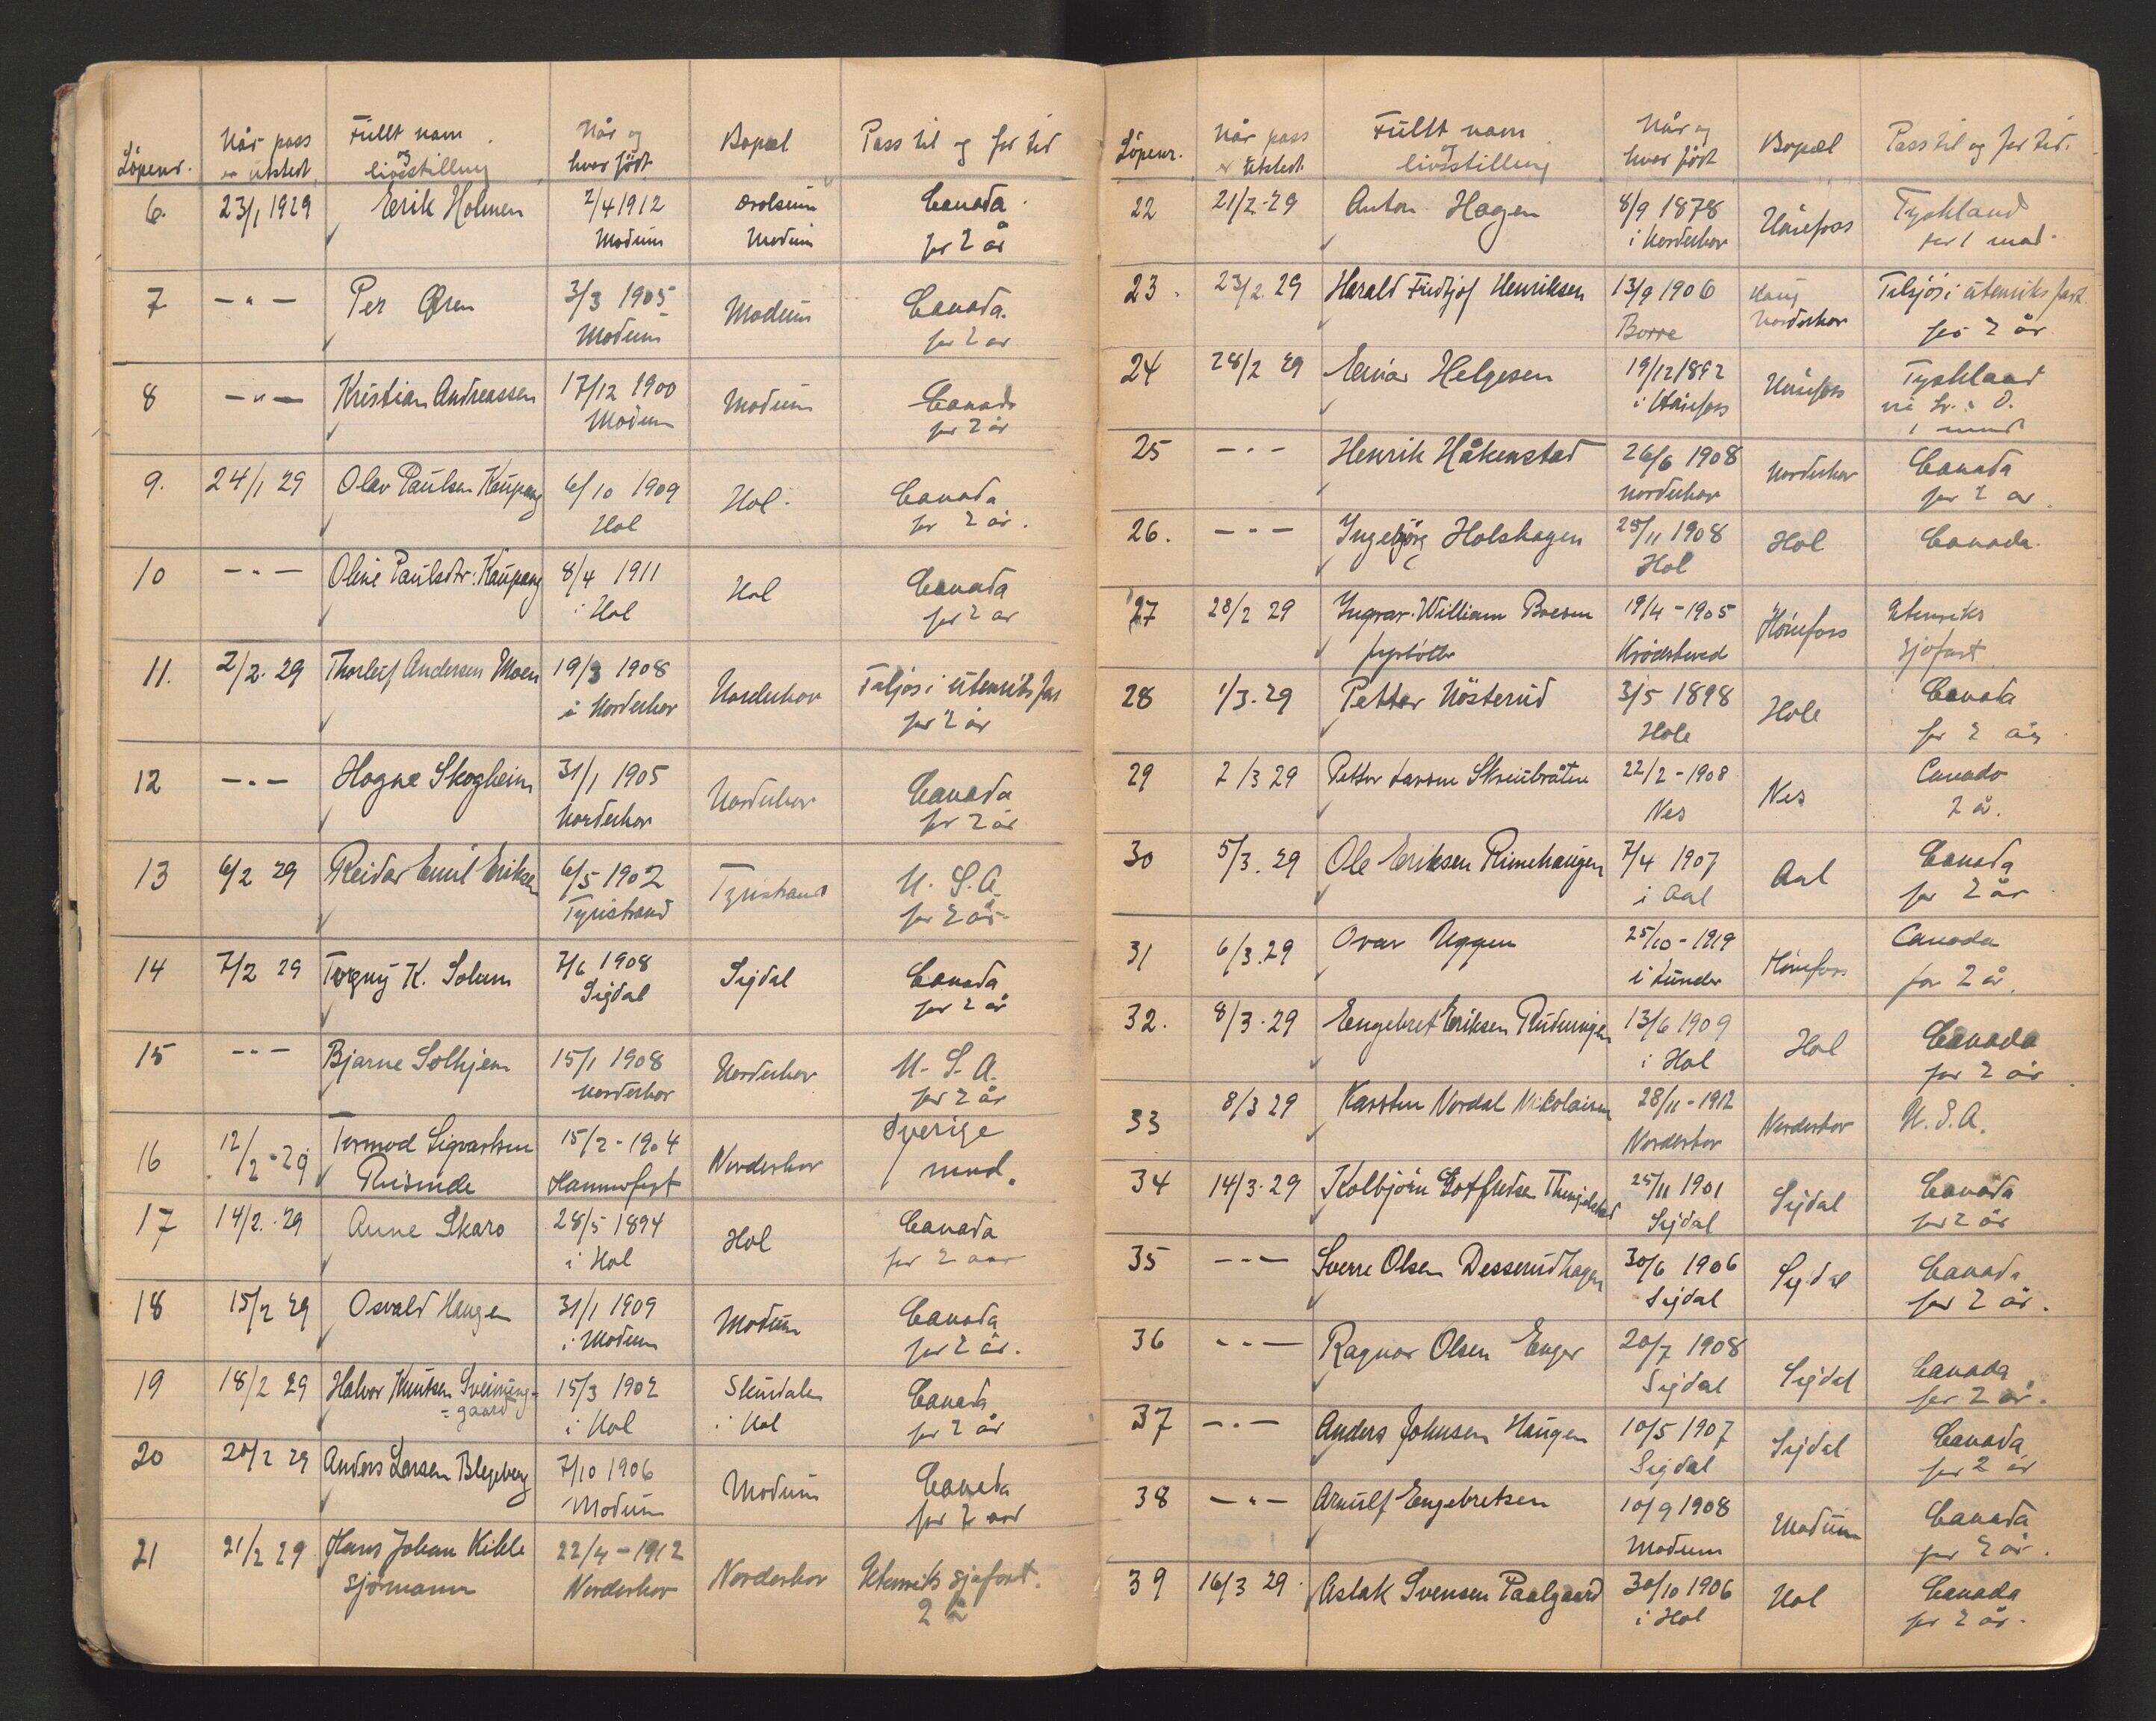 Löpenr. Når pass er utstedt. Fullt navn og livsstilling Når og hvor født Bopæl Pass til og for tid
6. 23/1 1929 Erik Holmen 2/4 1912 Modum Modum Canada for 2 år
7 -"- Per Øren 3/3 1905 Modum Modum Canada. for 2 år
8 -"- Kristian Andreassen 17/12 1900 Modum Modum Canada for 2 år
9. 24/1 29 Olav Paulsen Kaupang 6/10 1909 Hol Hol. Canada for 2 år.
10 -"- Oline Paulsdtr. Kaupang 8/4 1911 i Hol Hol Canada for 2 år
11. 2/2. 29 Thorleif Andersen Moen 19/3 1908 i Norderhov Norderhov Tilsjøs i utenriks fart for 2 år
12 -"- Hogne Skogheim 31/1 1905 Norderhov Norderhov Canada for 2 år
13 6/2 29 Reidar Emil Eriksen 6/5 1902 Tyristrand Tyristrand U.S.A. for 2 år
14 7/2 29 Torgny K. Solum 7/6 1908 Sigdal Sigdal Canada for 2 år
15 -"- Bjarne Solhjem 15/1 1908 Norderhov Norderhov U.S.A. for 2 år
16 12/2-29 Tormod Sigvartsen 15/2-1904 Hammerfest Norderhov Sverige 1 mnd.
17 14/2.29 Anne Skaro 28/5 1894 i Hol Hol Canada for 2 aar
18 15/2 29 Osvald Haugen 31/1 1909 i Modum Modum Canada for 2 år.
19 18/2 29 Halvor Knutsen Sveinung-gaard 15/3 1902 i Hol Skurdalen i Hol Canada for 2 år
20 20/2 29 Anders Larsen Blegeberg 7/10 1906 Modum Modum Canada for 2 aar
21 21/2 29 Hans Johan Kihle sjømann 22/4-1912 Norderhov Norderhov Utenriks sjøfart. 2 å
Löpenr. Når pass er utstedt. Fullt navn og livsstilling Når og hvor født Bopæl Pass til og for tid.
22 21/2-29 Anton Hagen 8/9 1878 i Norderhov Hönefoss Tyskland for 1 mnd.
23. 23/2.29 Harald Fridtjof Henriksen 13/9 1906 Borre Haug Norderhov Tilsjøs i utenriks fart. for 2 år.
24 28/2 29 Einar Helgesen 19/12 1892 i Hönefoss Hönefoss Tyskland 1 mnd
25 -"- Henrik Håkenstad 26/6 1908 Norderhov Norderhov Canada for 2 år.
26. -"- Ingebjörg Holshagen 25/11 1908 Hol Hol Canada.
27 28/2 29 Ingvar William Boesen fyrbøter 19/4-1905 Krödsherred Hönefoss Utenriks sjöfart
28 1/3.29 Petter Nösterud 3/5 1898 Hole Hole Canada for 2 år.
29 2/3 29 Petter Larsen Skreiubråten 22/2-1908 Nes Nes Canada 2 å.
30 5/3.29 Ole Eriksen Rimehaugen 7/4 1907 i Aal Aal Canada for 2 år
31 6/3.29 Ovar Uggen 25/10-1919 i Lunder Hönefoss Canada for 2 å.
32. 8/3.29 Engebret Eriksen Rudningen 13/6 1909 i Hol Hol Canada for 2 år
33 8/3 29 Karsten Nordal Nikolaisen 28/11-1912 Norderhov Norderhov U.S.A.
34 14/3.29 Kolbjörn Gotfredsen Thingelstad 25/11 1901 Sigdal Sigdal Canada for 2 år
35 -"- Sverre Olsen Desserudhagen 30/6 1906 Sigdal Sigdal Canada for 2 år.
36 -"- Ragnar Olsen Enger 20/7 1908 Sigdal Sigdal Canada for 2 år.
37 -"- Anders Johnsen Haugen 10/5 1907 Sigdal Sigdal Canada for 2 år
38 -"- Arnulf Engebretsen 10/9 1908 Modum Modum Canada for 2 år.
39 16/3 29. Aslak Svensen Paalgaard 30/10 1906 i Hol Hol Canada for 2 år.